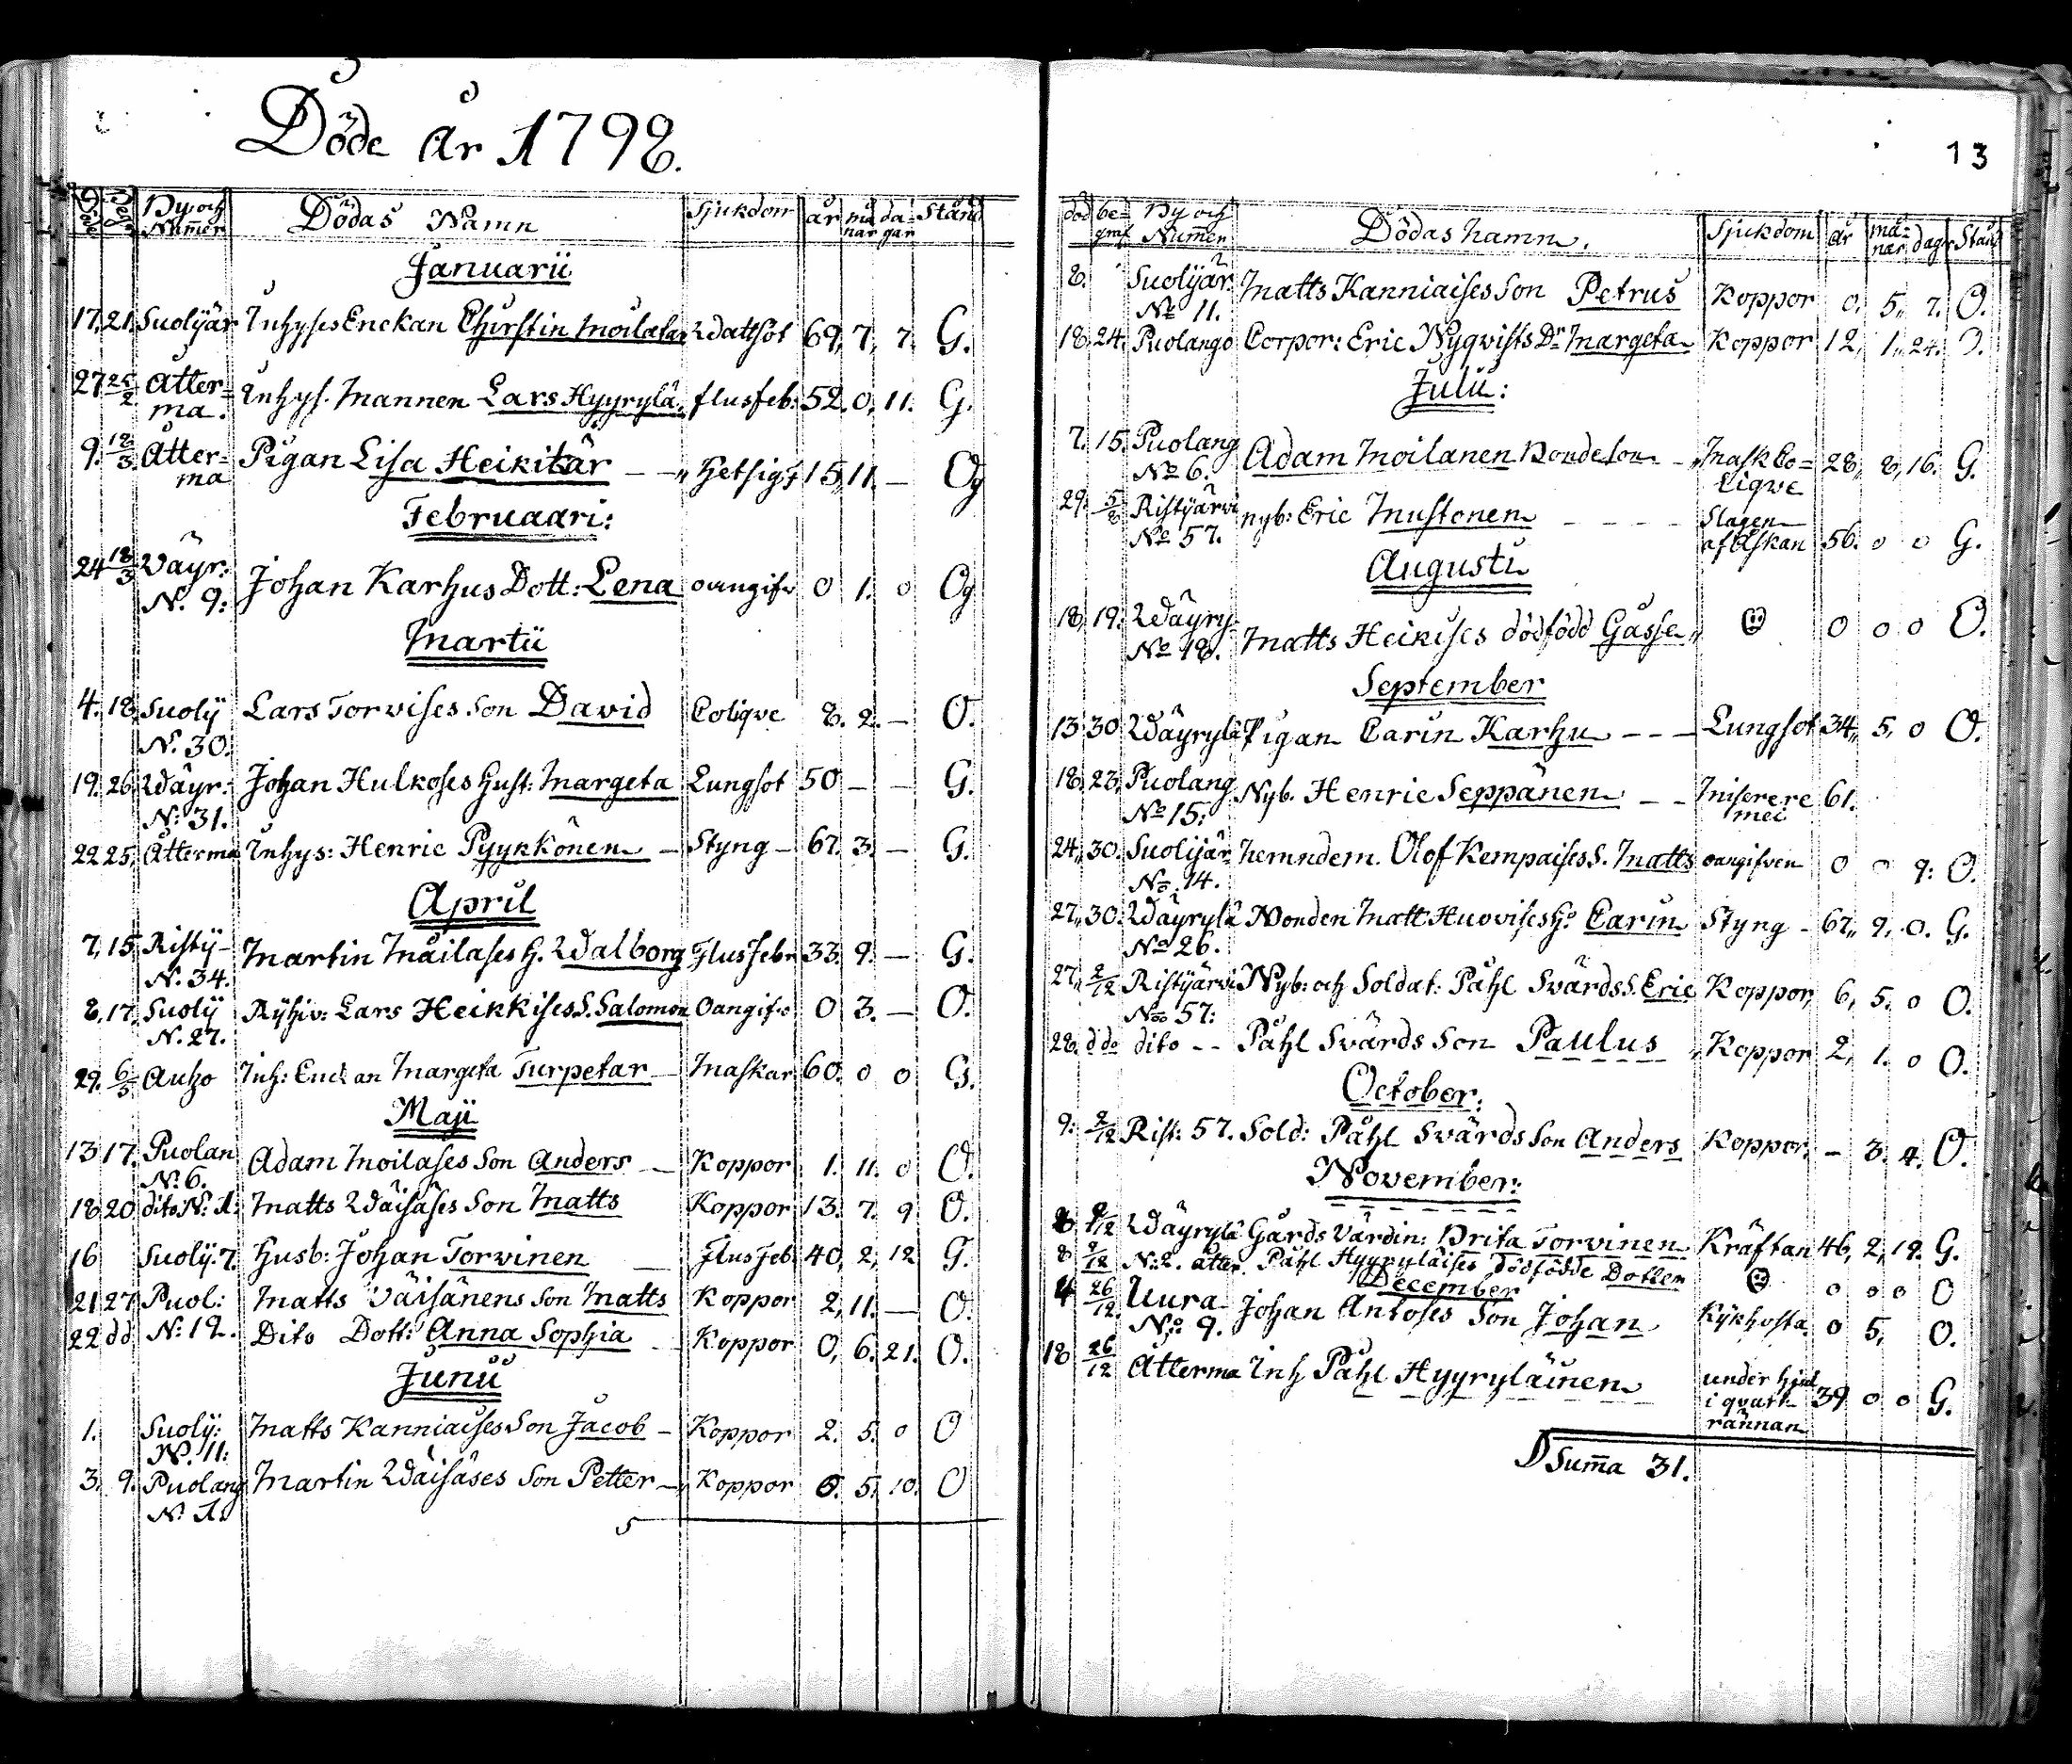 Döde År 1798.
Död Begr By och Numer Dödas Namn Sjukdom år må nar da gar Stånd
Januarii
17. 21. Suolijär Inhyses Enckan Chirstin Moilatar Wattsot 69, 7, 7. G.
27 25/2 Atter=
ma. Inhys. Mannen Lars Hyyrylä. flusfeb: 52. 0, 11. G.
9. 18/3 Atter=
ma Pigan Lisa Heikitär — „ Hetsig f 15, 11. — Og
Februaari:
24 18/3 Wäyr:
N. 9: Johan Karhus Dott: Lena oangifv 0 1. 0 Og
Martii
4. 18 Suolij
N. 30. Lars Torvises Son David Coliqve 8. 2. — O.
19. 26 Wäyr:
N: 31. Johan Hulkoses Hust: Margeta Lungsot 50 — — G.
22 25, Atterma Inhys: Henric Pyykkönen — Styng — 67. 3. — G.
April
7, 15, Ristij—
N. 34. Martin Mäilases H. Walborg Flusfebr 33. 9. — G.
8, 17, Suolij
N. 27. Rysiv: Lars Heikkises S. Salomon Oangifv 0 3. — O.
29. 6/5 Auho Inh: Enckan Margeta Turpetar — Maskar 60. 0 0 G.
Maji
13 17. Puolan
N: 6. Adam Moilases Son Anders — Koppor 1. 11. 0 O.
18 20 dito N: 1: Matts Wäisäses Son Matts Koppor 13. 7. 9 O.
16 Suolij: 7. Husb: Johan Torvinen — Flusfeb 40, 2, 12 G.
21. 27 Puol:
N: 12. Matts Väisänens Son Matts Koppor 2, 11. — O.
22 dd Dito Dott: Anna Sophia — Koppor 0, 6. 21. O.
Junii
1. Suolij:
N. 11: Matts Kanniaises Son Jacob — Koppor 2. 5. 0 O
3. 9. Puolang
N. 1. Martin Wäisäses Son Petter — Koppor 0. 5. 10. O
13
död be=
graf. By och
Numer Dödas namn. Sjukdom år må=
nar dagr Stånd
8. Suolijär
No 11. Matts Kanniaises Son Petrus Koppor 0. 5, 7. O.
18. 24. Puolango Corpor: Eric Nyqvists Dr Margeta Koppor 12, 1, 24. O.
Julii:
7. 15. Puolang
No 6. Adam Moilanen Bondeson — Mask Co=
liqve 28, 8, 16. G.
29. 5/8 Ristijärvi
No 57. nyb: Eric Mustonen — — — — Slagen
af Åskan 56. 0 0 G.
Augusti
18, 19. Wäyry
No 18. Matts Heikises dödfödd Gässe„ 0 0 0 O.
September
13 30 Wäyrylä Pigan Carin Karhu — — — Lungsot 34, 5, 0 O.
18. 23, Puolang
No 15: Nyb. Henric Seppänen — — Miserere
mei 61.
24, 30. Suolijär
No. 14. hemndem. Olof Kempaises S. Matts oangifven 0 0 9: O.
27, 30. Wäyrylä
No 26. Bonden Matt: Huovises H. Carin Styng — 67, 9, 0. G.
27, 2/12 Ristijärvi
No 57: Nyb: och Soldat: Påhl Svärds S. Eric Koppor, 6, 5. 0 O.
28. d do dito -- Påhl Svärds Son Paulus „ Koppor 2, 1. 0 O.
October:
9: 2/12 Rist: 57. Sold: Påhl Svärds Son Anders Koppor, — 3. 4. O.
November:
8 9/12 Wäyrylä Gårds Värdin: Brita Torvinen Kräftan 46, 2, 19. G.
8 9/12 N: 2. atter Påhl Hyyryläises dödfödde Dotter 0 0 0 O
December
4 26/12. Uura
No: 9. Johan Antoses Son Johan Kykhosta 0 5, O.
18 26/12 Atterma Inh Påhl Hyyryläinen under hjul
i qvarn
rännan 39 0 0 G.
Suma 31.